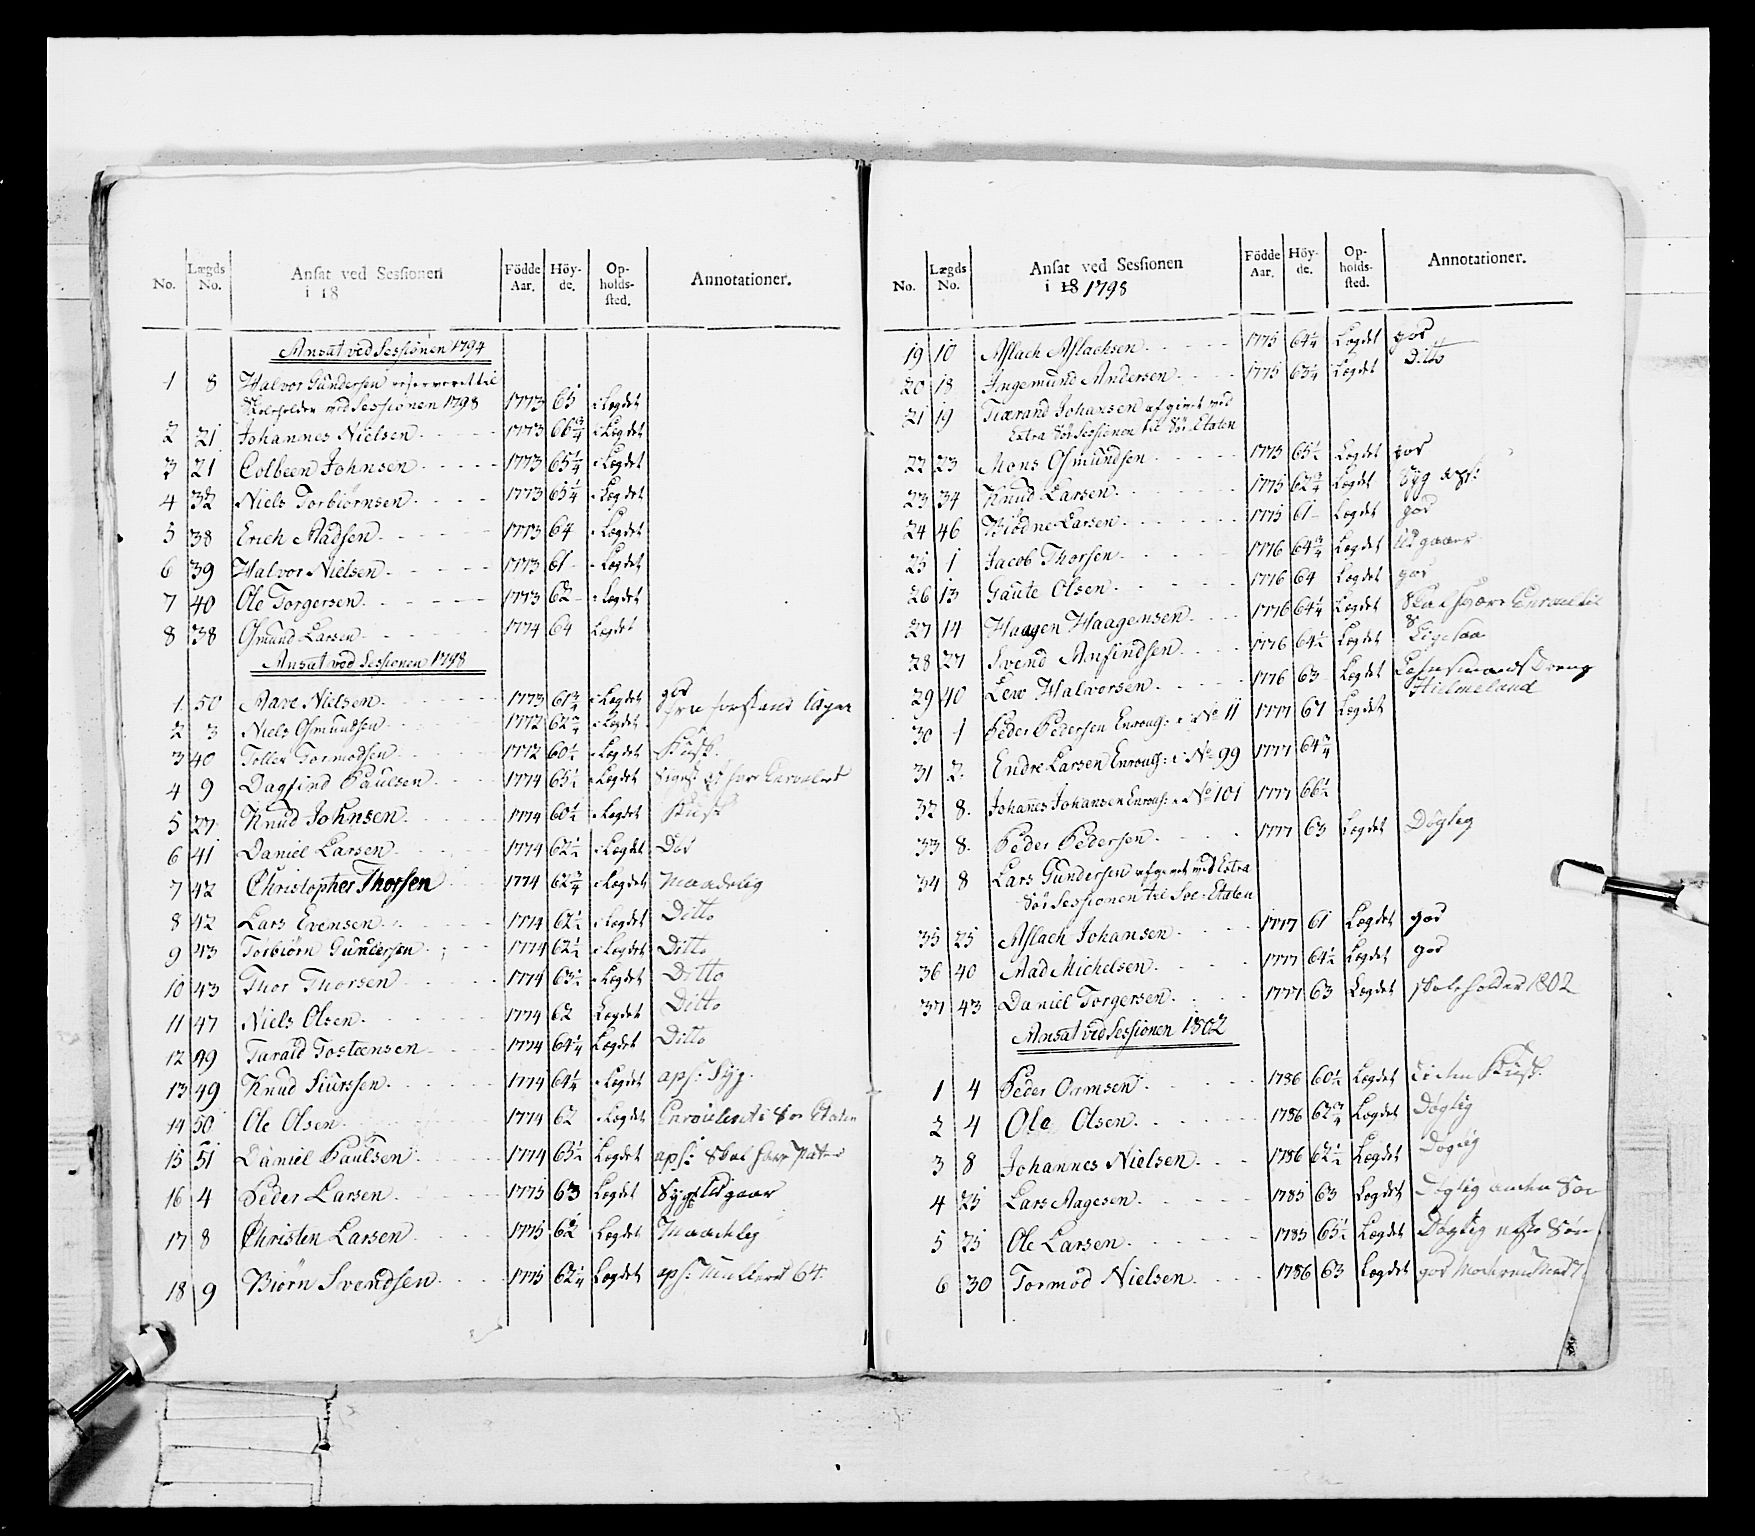 No. Lægds No. Ansat ved Sessionen i 18 Födde Aar. Höyde. Opholdssted. Annotationer.
Ansat ved Sessionen 1794
1 8 Halvor Gundersen reserveret til
Skolholder ved Sessionen 1798 1773 65 Lægdet
2 21 Johannes Nielsen 1773 66 3/4 Lægdet
3 21 Colbeen Johnsen 1773 65 1/4 Lægdet
4 32 Niels Torbiörnsen 1773 65 1/4 Lægdet
5 38 Erich Madsen 1773 64 Lægdet
6 39 Halvor Nielsen 1773 61 Lægdet
7 40 Ole Torgersen 1773 62 Lægdet
8 38 Osmund Larsen 1774 64 Lægdet
Ansat ved Sessionen 1798
1 50 Aare Nielsen 1773 61 3/4 Lægdet god
2 3 Niels Osmundsen 1772 62 3/4 Lægdet
3 40 Tollev Tormodsen 1772 60 1/2 Lægdet Kusk
4 9 Dagfind Paulsen 1774 65 1/2 Lægdet
5 27 Knud Johnsen 1774 60 1/2 Lægdet Kusk
6 41 Daniel Larsen 1774 62 1/2 Lægdet Do
7 42 Christopher Thorsen 1774 62 3/4 Lægdet Maadelig
8 42 Lars Evensen 1774 62 1/2 Lægdet Ditto
9 43 Torbiörn Gundersen 1774 62 1/2 Lægdet Ditto
10 43 Thor Thorsen 1774 63 1/2 Lægdet Ditto
11 47 Niels Olsen 1774 62 Lægdet Ditto
12 49 Turald Tosteensen 1774 64 1/4 Lægdet Ditto
13 49 Knud Siursen 1774 64 1/4 Lægdet aps: Syg.
14 50 Ole Olsen 1774 62 Lægdet Enroulleret i Söe Etaten
15 51 Daniel Paulsen 1774 65 1/2 Lægdet aps: Skal have
16 4 Peder Larsen 1775 63 Lægdet Syg Udgaar
17 8 Christen Larsen 1775 62 Lægdet Maadelig
18 9 Biörn Svendsen 1775 62 1/4 Lægdet aps: 64
No. Lægds No. Ansat ved Sessionen i 18 1798 Födde Aar. Höyde. Opholdssted. Annotationer.
19 10 Aslach Aslachsen 1775 64 1/4 Lægdet god
20 18 Ingemund Andersen 1775 63 1/4 Lægdet Ditto
21 19 Tiærand Johansen afgivet ved
Extra Söe Sessionen til Söe-Etaten
22 23 Mons Osmundsen 1775 65 1/2 Lægdet god
23 34 Knud Larsen 1775 62 3/4 Lægdet Syg
24 46 Biödne Larsen 1775 61 Lægdet god
25 1 Jacob Thorsen 1776 64 3/4 Lægdet Udgaaer
26 13 Gaute Olsen 1776 64 Lægdet god
27 14 Haagen Haagensen 1776 64 1/4 Lægdet
28 27 Svend Anfindsen 1776 64 1/2 Lægdet Ligesaa
29 40 Lew Halvorsen 1776 63 Lægdet Lehnsmands Dreng
Hielmeland
30 1 Peder Pedersen Enroul: i No 11 1777 67 Lægdet
31 2 Endre Larsen Enroul: i No 99 1777 64 3/4
32 8 Johannes Johansen Enroul: i No 101 1777 66 1/2
33 8 Peder Pedersen 1777 63 Lægdet Döglig
34 8 Lars Gundersen afgivet ved Extra
Söe Sessionen til Söe-Etaten
35 25 Aslach Johansen 1777 61 Lægdet god
36 40 Aad Michelsen 1777 64 1/2 Lægdet god
37 43 Daniel Torgersen 1777 63 Lægdet Skoleholder 1802
Ansat ved Sessionen 1802
1 4 Peder Ormsen 1786 60 1/2 Lægdet Liden Kusk
2 4 Ole Olsen 1786 62 3/4 Lægdet Döglig
3 8 Johannes Nielsen 1786 62 1/2 Lægdet Döglig
4 25 Lars Aagesen 1785 63 Lægdet Döglig
5 25 Ole Larsen 1785 65 1/2 Lægdet Döglig
6 30 Tormod Nielsen 1786 63 Lægdet god